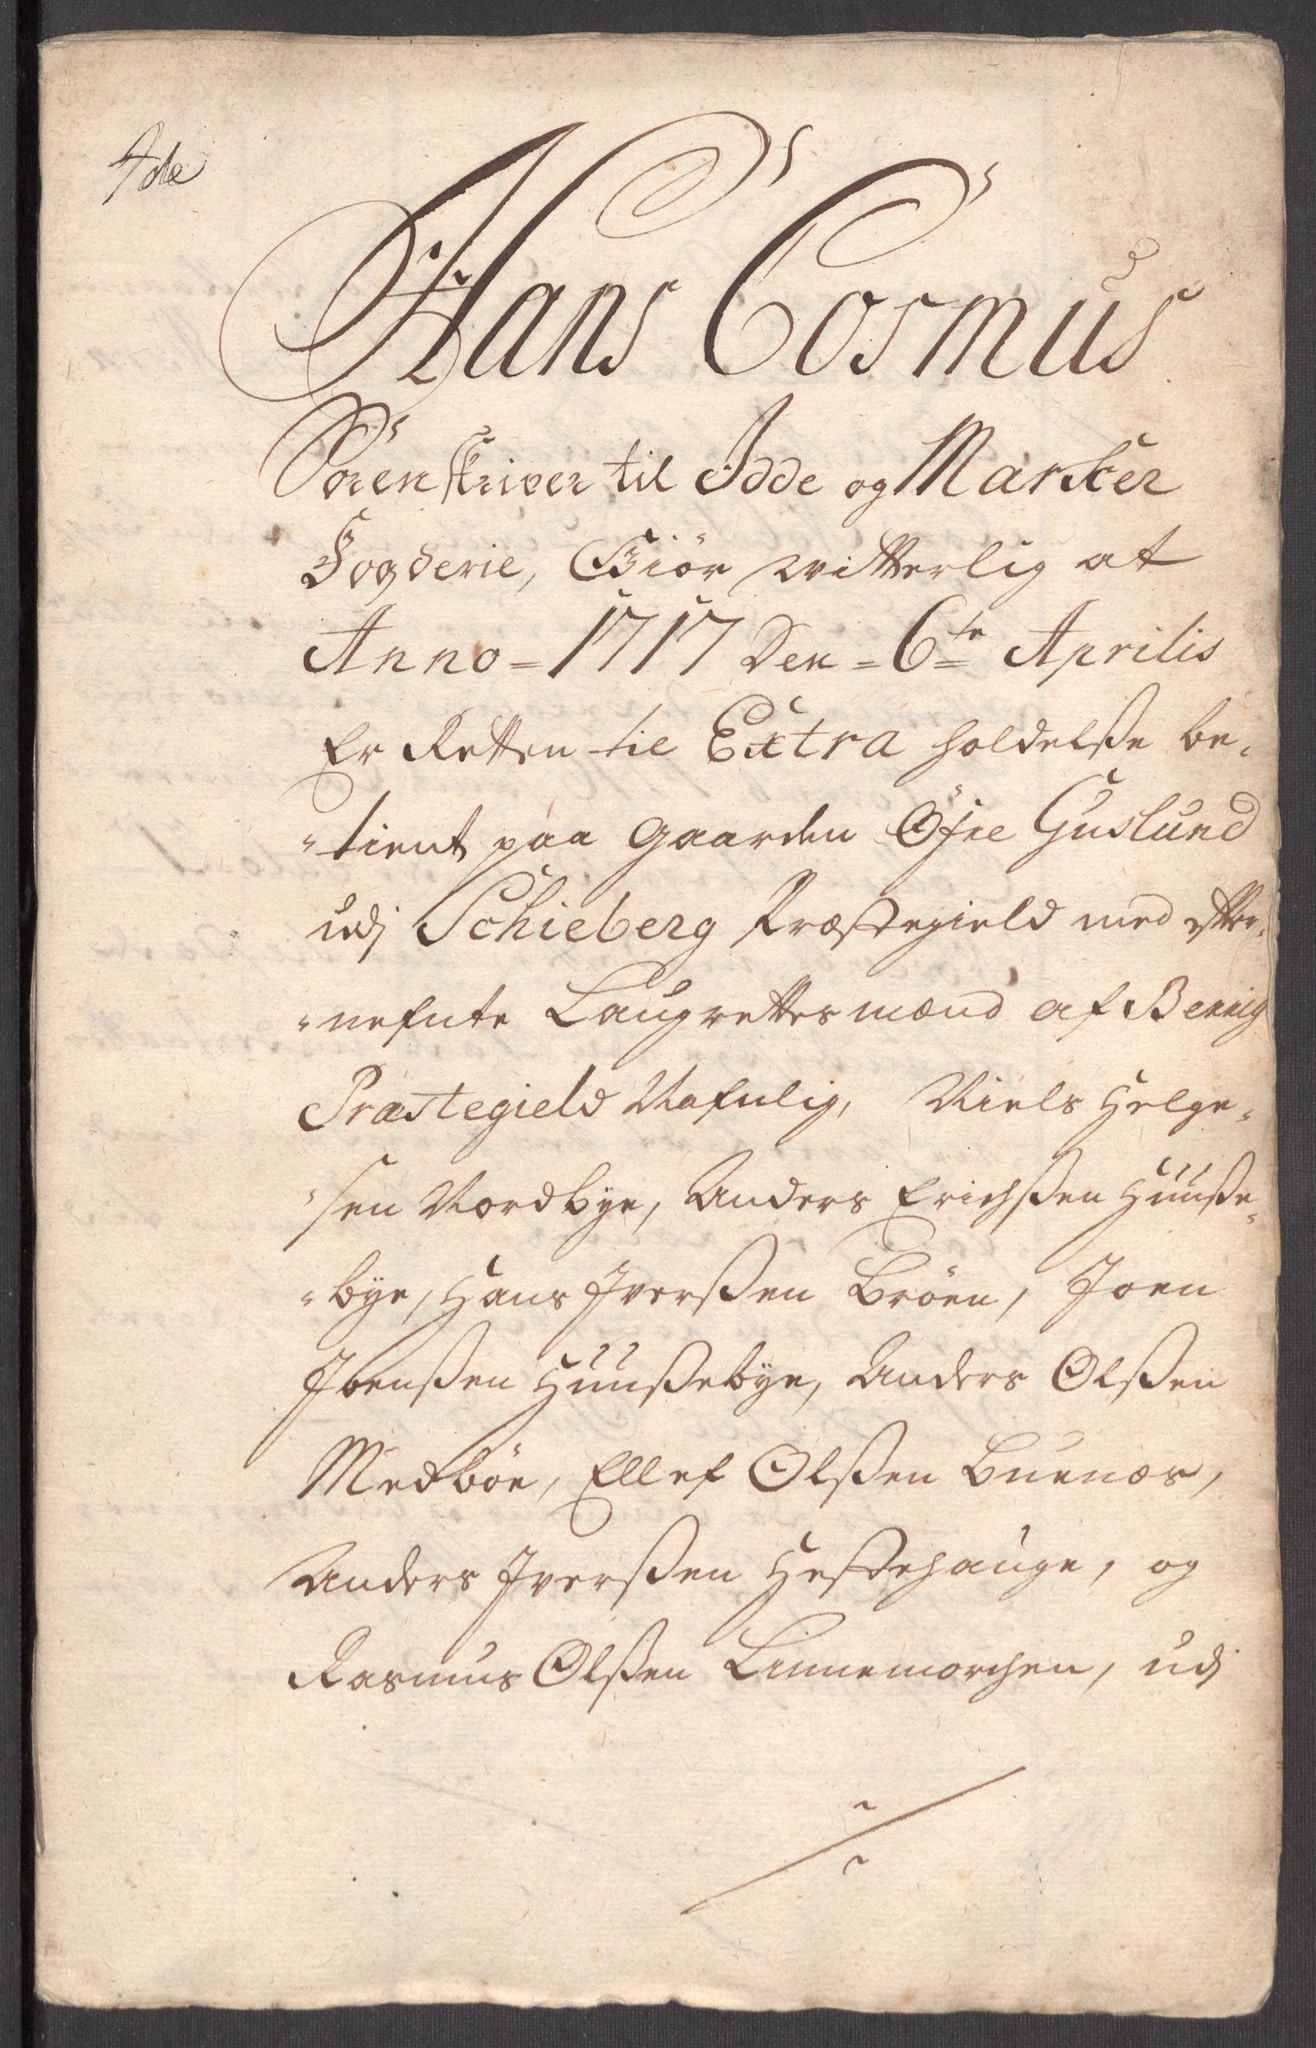 Hans Cosmus
Sorenskriver til Idde og Marker
Fogderie, Giør vitterlig at
Anno - 1717 Den - 6te Aprilis
Er Retten til Extra holdelße be-
-tient paa Gaarden Øfre Guslund
udj Schieberg Præstegield med efter-
-nefnte Laugrettesmænd af Bennig
Præstegield Nafnlig, Niels Helge-
-sen Nordbye, Anders Erichßen Huuße-
-bye, Hans Iverßen Bröen, Joen
Ibenßen Huußebye, Anders Olßen
Medböe, Ellef Olßen Buenæs,
Anders Iverßen Hestehauge, og
Rasmus Olßen Linnemorchen, udj